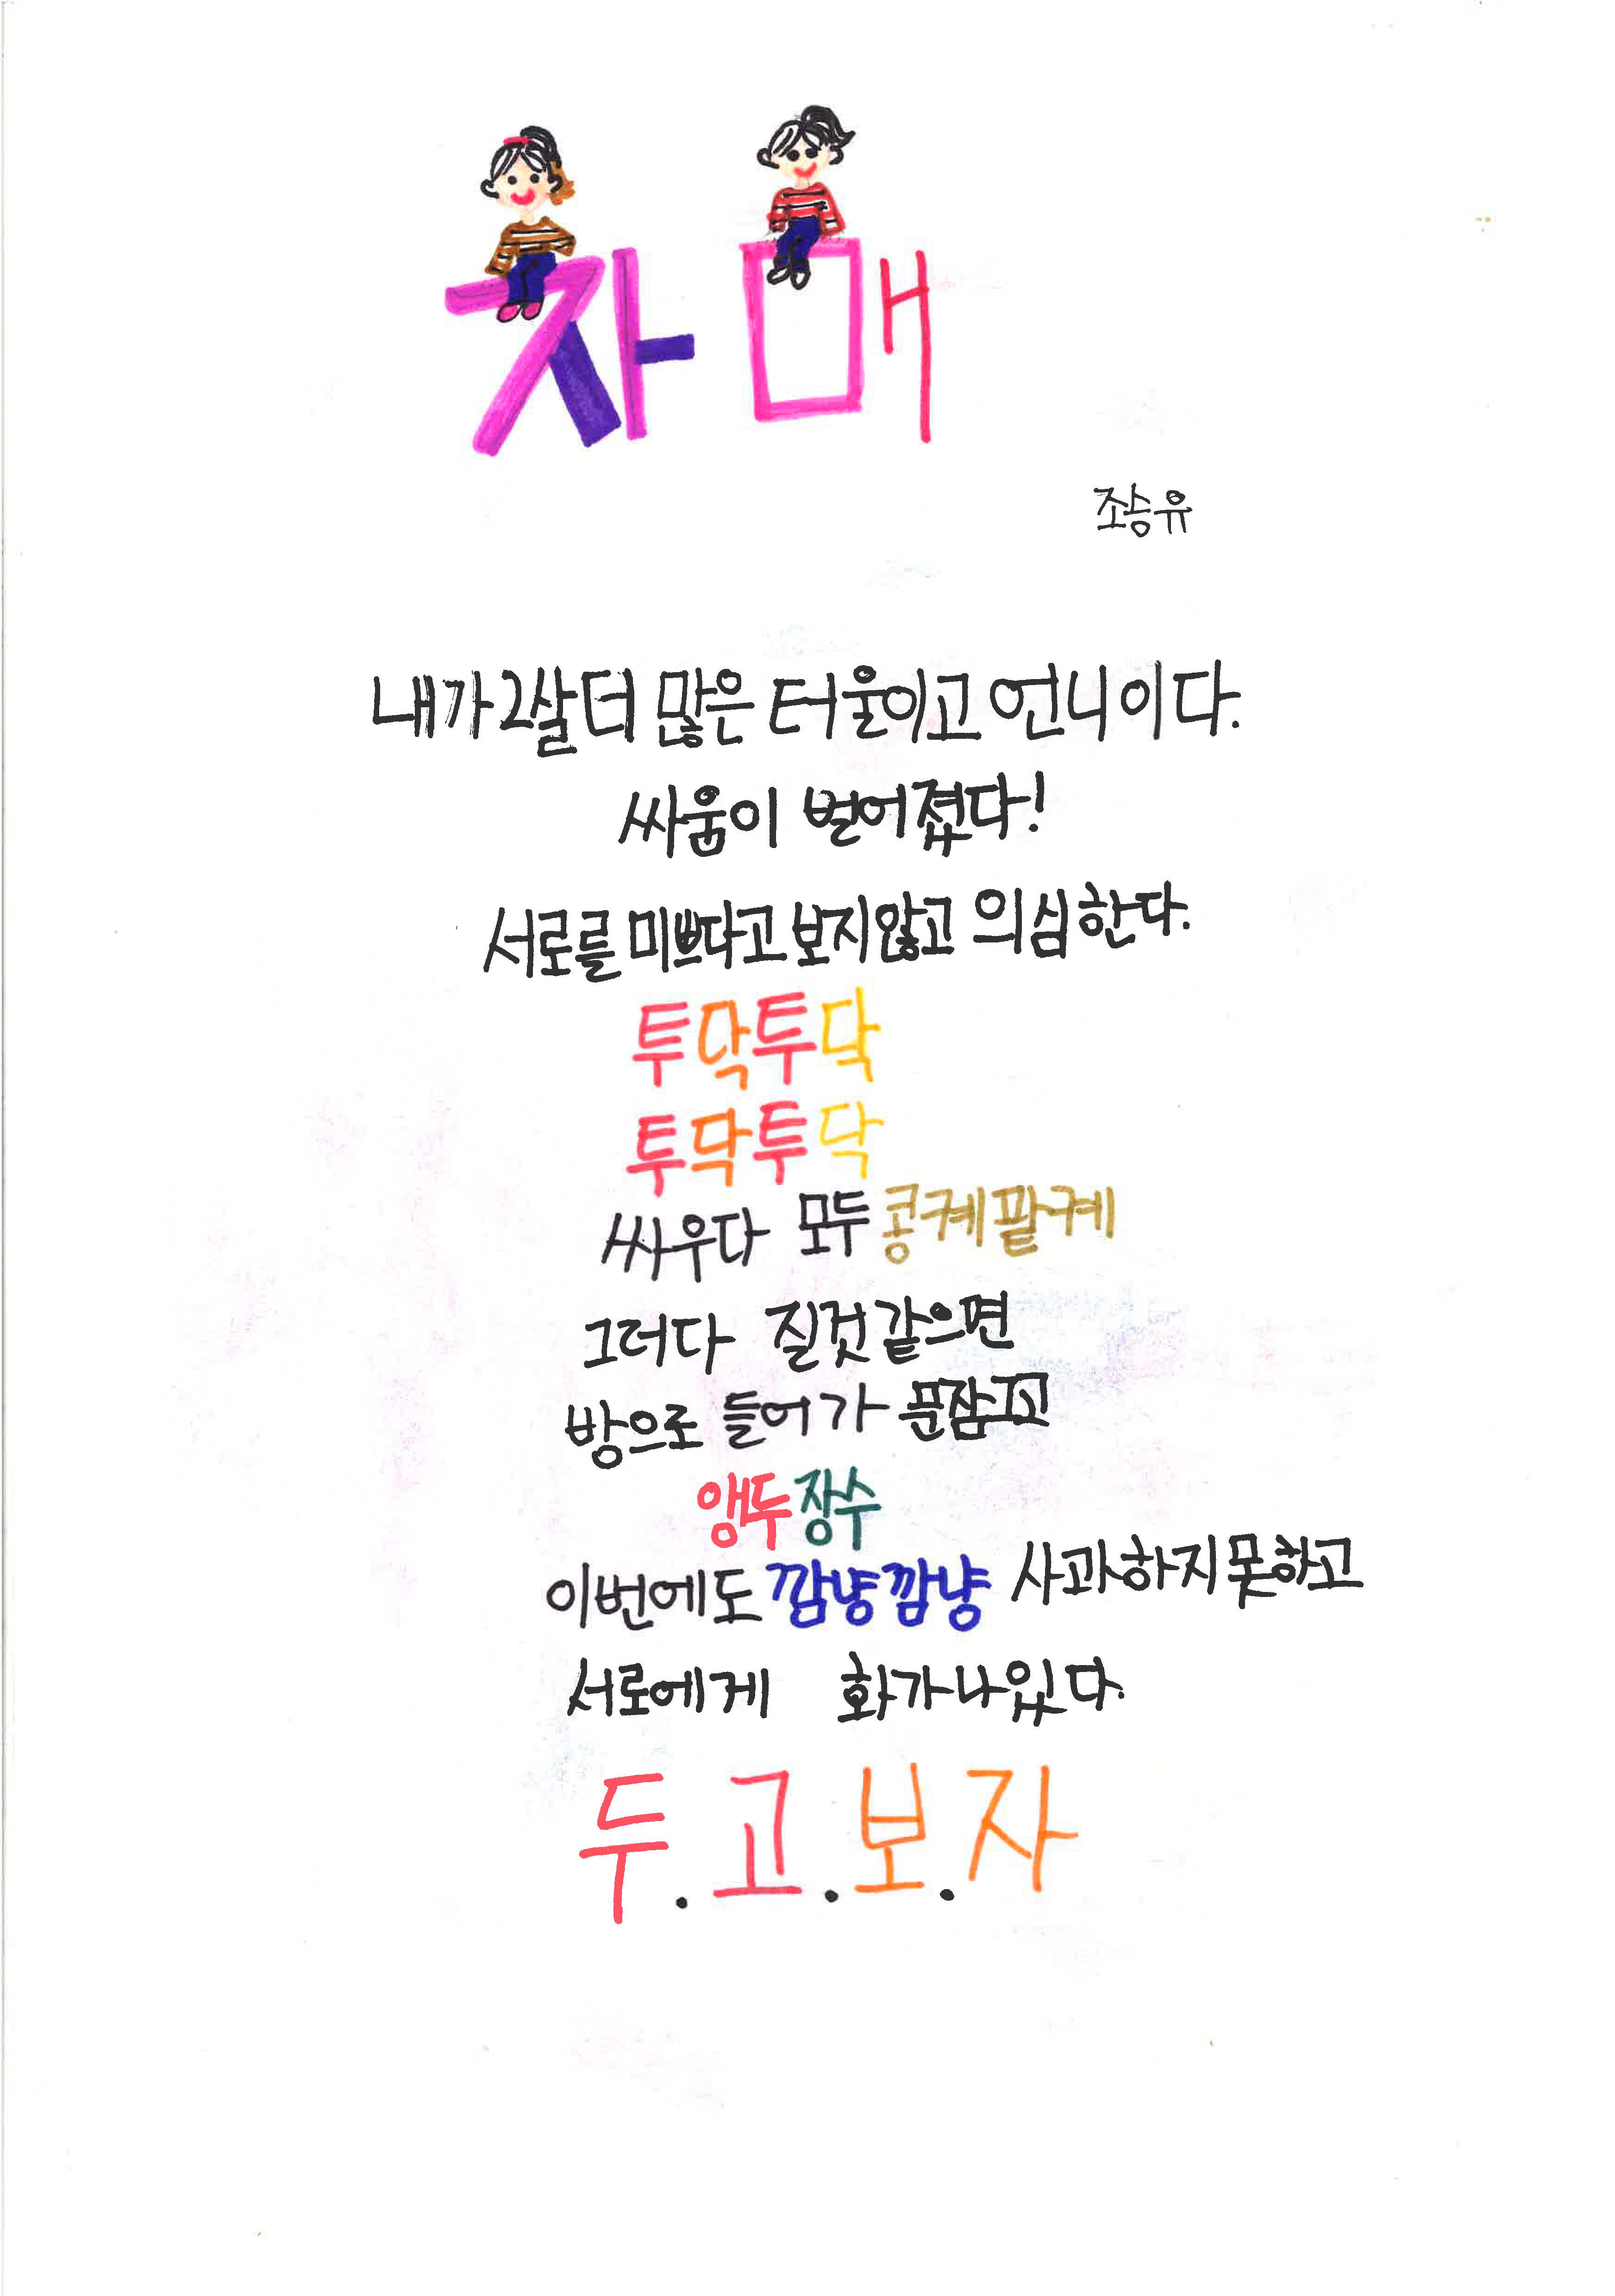 자매
조승유
내가 2살 더 많은 터울이고 언니이다.
싸움이 벌어졌다!
서로를 미쁘다고 보지않고 의심한다.
투닥투닥
투닥투닥
싸우다 모두 콩켸팥켸
그러다 질것 같으면
방으로 들어가 문잠그고
앵두장수
이번에도 깜냥깜냥 사과하지 못하고
서로에게 화가나있다.
두.고.보.자